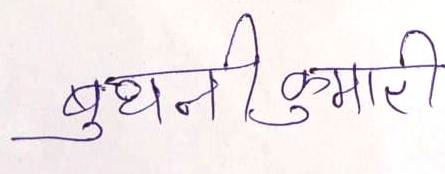 बुधनी कुमारी